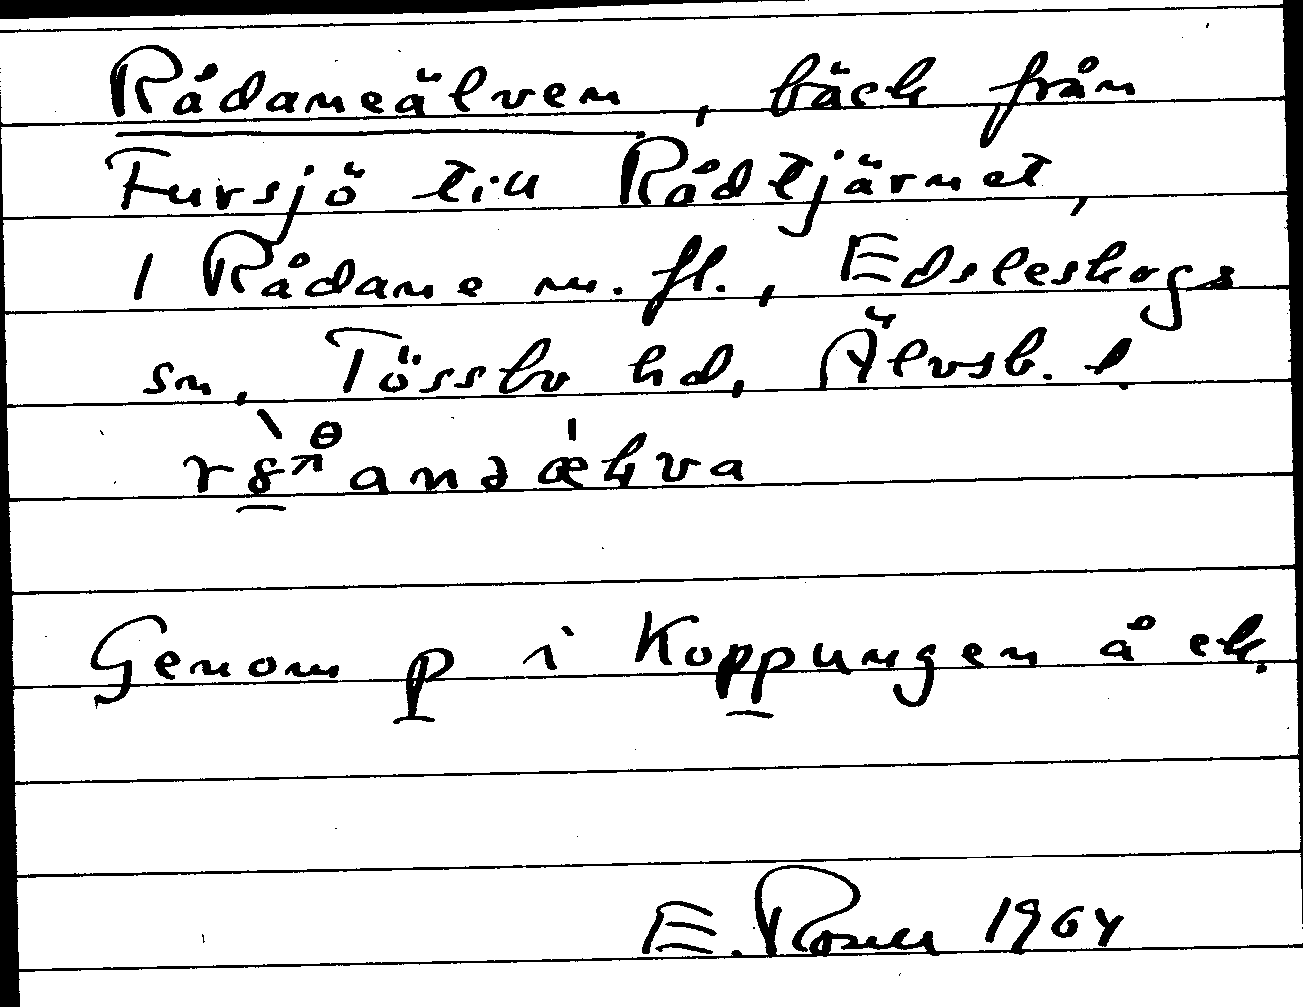 Rådaneälven, bäck från
Fursjö till Rådtjärnet,
1 Rådane m. fl., Edsleskogs
sn, Tössbo hd, Älvsb. l.
Genom p i Koppungen å ek.
E. Rosell 1964